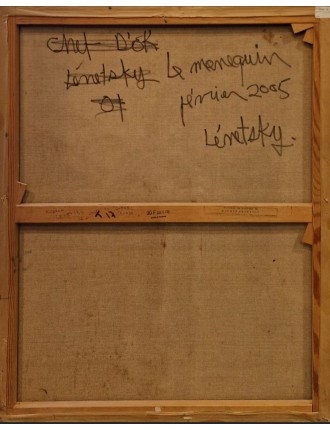 Chef D'oK
Lénetsky
01
Le menequin
février 2005
Lénetsky.
X IX